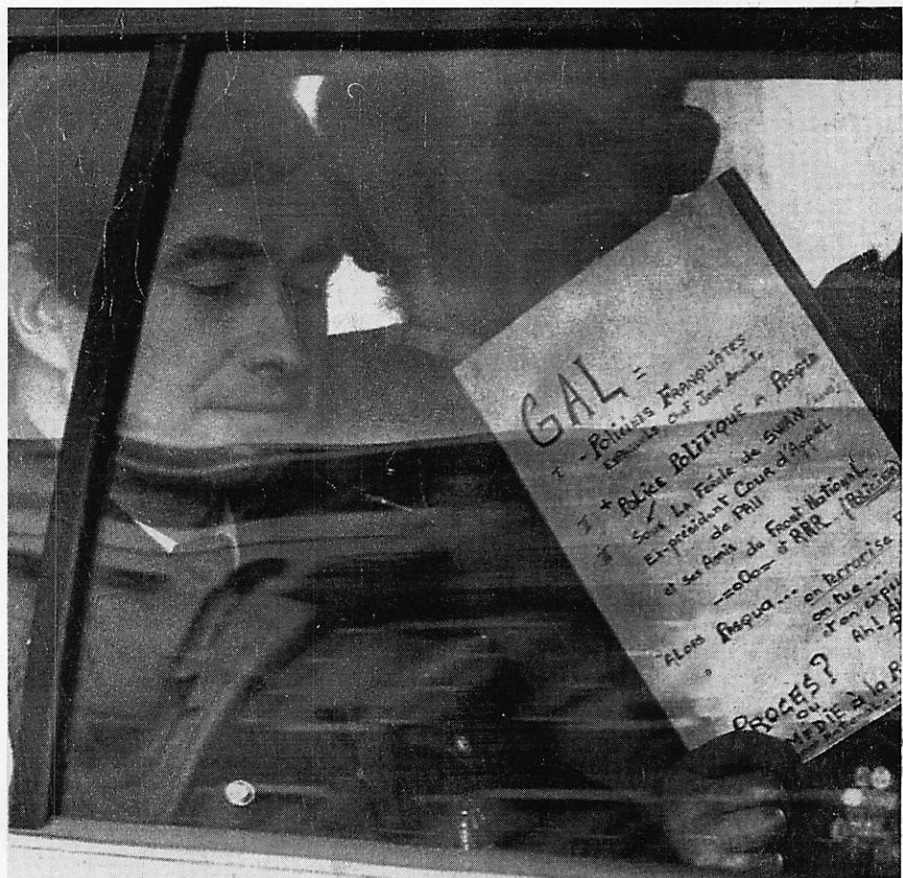 GAL =
I - POLICIERS FRANQUISTES
I + POLICE POLITIQUE à PASQUA
I Sous La Férule de SVAHN
Ex-président Cour d'Appel
de PAU
et ses Amis du Front National
-=oOo=- et RRR (Policier
ALORS Pasqua... on terrorise
on tue...
et on
Ah!
PROCES?
ou
MEDIE à la